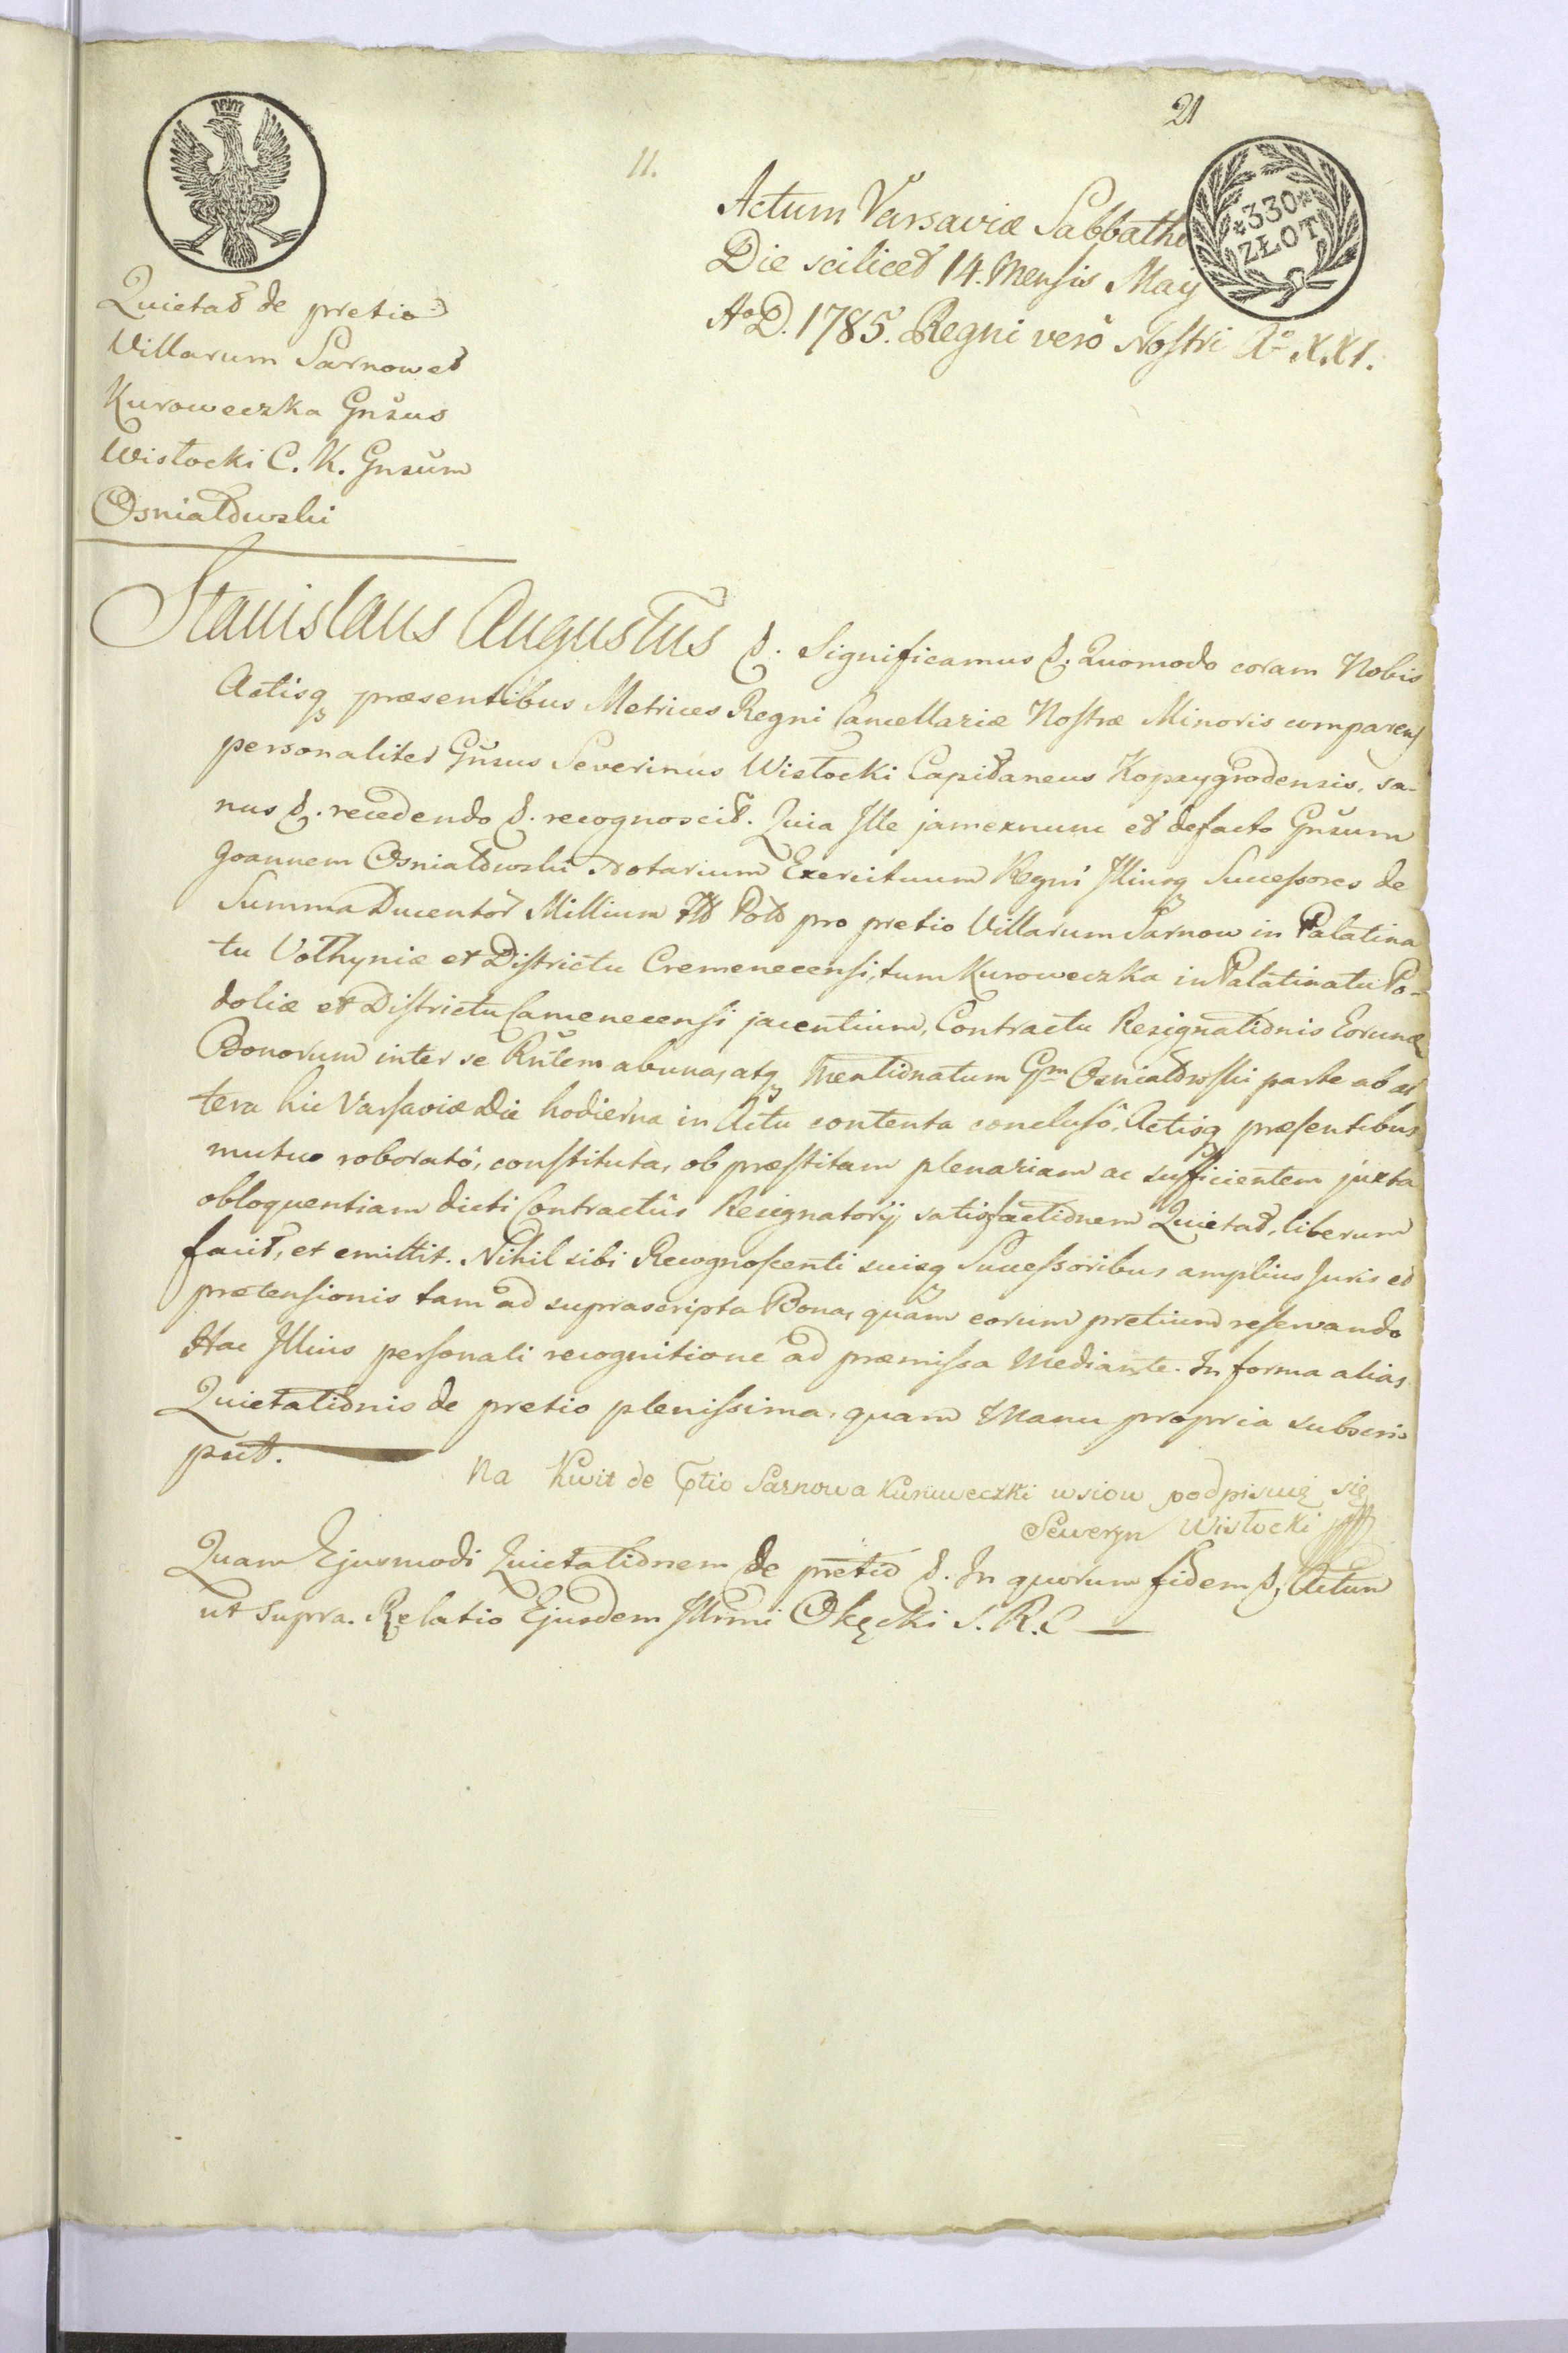 21
11.
330
ZŁOT
Actum Varsaviæ Sabbatho
Die scilicet 14. Mensis Maÿ
Ao D. 1785. Regni verò Nostri Ao XXI.
Quietat de pretio
Villarum Sarnow et
Kuroweczka Gnsus
Wisłocki C. K. Gnsum
Stanislaus Augustus &. Significamus &. Quomodo coram Nobis
Actisq præsentibus Metrices Regni Cancellariæ Nostræ Minoris comparens
personaliter Gnsus Severinus Wisłocki Capitaneus Kopaygrodensis, sa-
nus &. recedendo &. recognoscit. Quia Ille jam exnunc et defacto Gnsum
Joannem Notarium Exercituum Regni Illiusq Successores de
Summa Ducentor Millium Flo Pol pro pretio Villarum Sarnow in Palatina
tu Volhyniæ et Districtu Cremenecensi, tum Kuroweczka in Palatinatu Po-
doliæ et Districtu Camenecensi jacentium, Contractu Resignationis Eorund
Bonorum inter se Rntem ab una, atq Mentionatum Gm parte ab al
tera hic Varsaviæ Die hodierna in Actu contenta conclusô, Actisq præsentibus
mutuo roboratô, constituta, ob præstitam plenariam ac sufficientem juxta
obloquentiam dicti Contractûs Resignatorÿ satisfactionem Quietat, liberum
facit, et emittit. Nihil sibi Recognoscenti suisq Successoribus amplius Juris et
prætensionis tam ad suprascripta Bona, quàm eorum pretium reservando
Hac Illius personali recognitione ad præmissa Mediante. In forma alias
Quietationis de pretio plenissima, quam Manu propria subscri
psit.
Na Kwit de Ptio Sarnowa Kuruweczki wsiow podpisuię się
Seweryn Wisłocki
Quam Ejusmodi Quietationem de pretio &. In quorum fidem &. Actum
ut supra. Relatio Ejusdem Illrmi Okęcki S. R. C